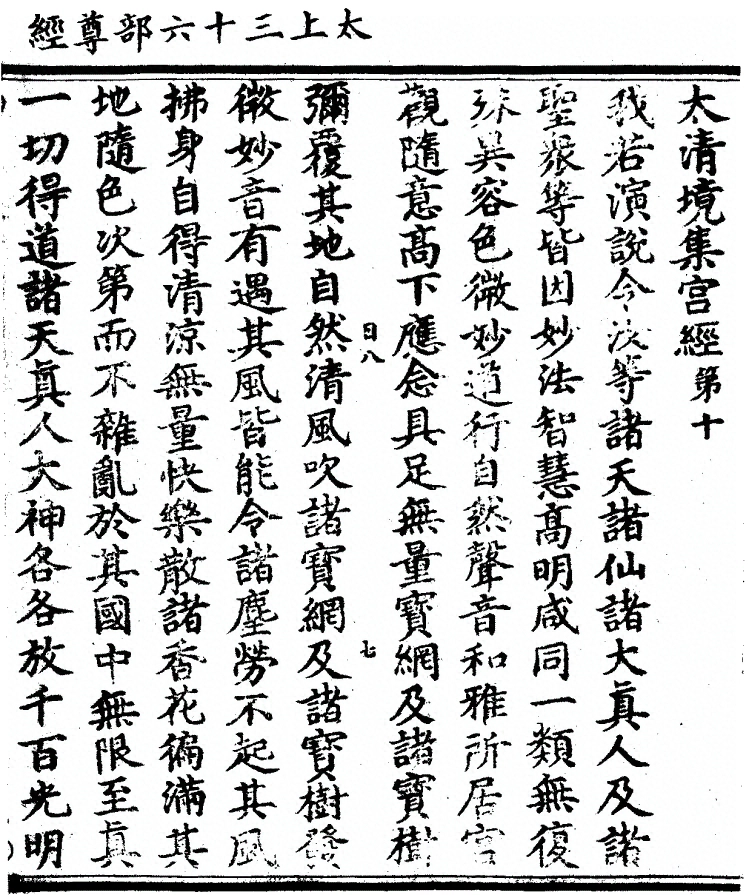 太上三十六部尊經
太清境集宮經第十
我若演說令汝等諸天諸仙諸大眞人及諸
聖衆等皆因妙法智慧高明咸同一類無復
殊異容色微妙道行自然聲音和雅所居宮
觀隨意高下應念具足無量寶網及諸寶樹
日八 七
彌覆其地自然清風吹諸寶網及諸寶樹發
微妙音有遇其風皆能令諸塵勞不起其風
拂身自得清涼無量快樂散諸香花徧滿其
地隨色次第而不雜亂於其國中無限至眞
一切得道諸天眞人大神各各放千百光明